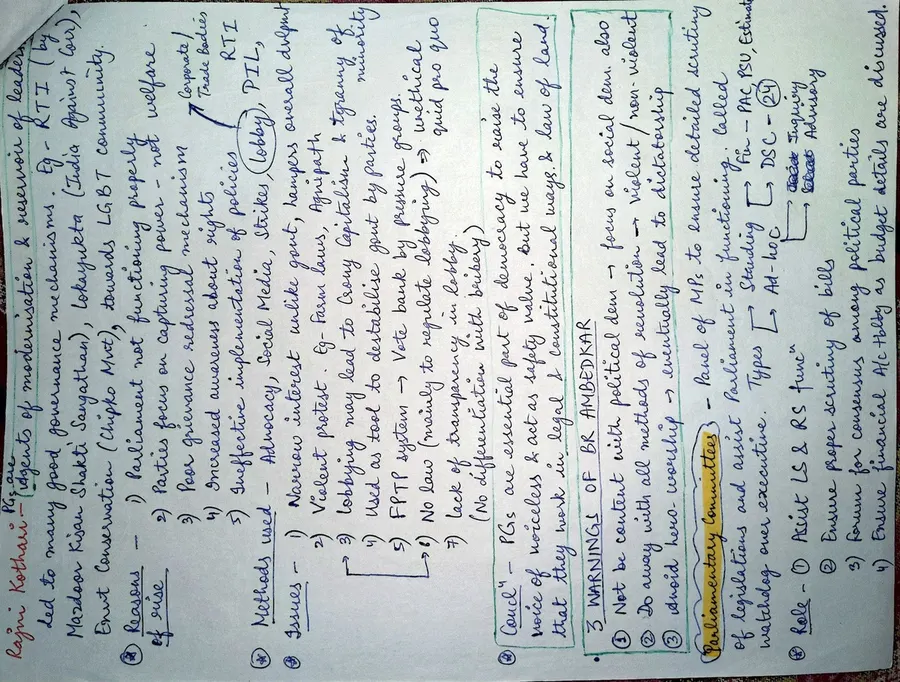 PGs are
Rajni Kothari - (agents of modernisation & reservoir of leaders
Led to many good governance mechanisms. Eg - RTI (by
Mazdoor Kisan Shakti Sangathan), Lokayukta (India Against Corr),
Envnt Conservation (Chipko Mvt), towards LGBT community.
Reasons of rise - 1) Parliament not functioning properly
2) Parties focus on capturing power - not welfare
3) Poor grievance redressal mechanism
Corporate/
Trade Bodies
4) Increased awareness about rights
5) Ineffective implementation of policies
RTI
Methods used - Advocacy, Social Media, Strikes, lobby, PIL,
Issues - 1) Narrow interest unlike govnt, hampers overall dvlpmt
2) Violent protest. Eg - Farm laws, Agnipath
3) Lobbying may lead to Crony Capitalism & tyranny of minority
4) Used as tool to destabilise govnt by parties.
5) FPTP system → Vote bank by pressure groups.
6) No law (mainly to regulate lobbying) ⇒ unethical quid pro quo
7) Lack of transparency in lobby.
(No differentiation with bribery)
Concln - PGs are essential part of democracy to raise the
voice of voiceless & act as safety valve. But we have to ensure
that they work in legal & constitutional ways. & law of land.
3 WARNINGS OF BR AMBEDKAR
① Not be content with political dem - focus on social dem. also
② Do away with all methods of revolution → violent / non-violent
③ Avoid hero-worship → eventually lead to dictatorship
Parliamentary Committees - Panel of MPs to ensure detailed scrutiny
of legislations and assist Parliament in functioning. Called
watchdog over executive.
Types
Standing
Fin - PAC, PSU, Estimate
DSC - 24
Ad-hoc
Inquiry
Advisory
Role - ① Assist LS & RS funcn
② Ensure proper scrutiny of bills
3) Forum for consensus among political parties
4) Ensure financial A/c tbley as budget details are discussed.